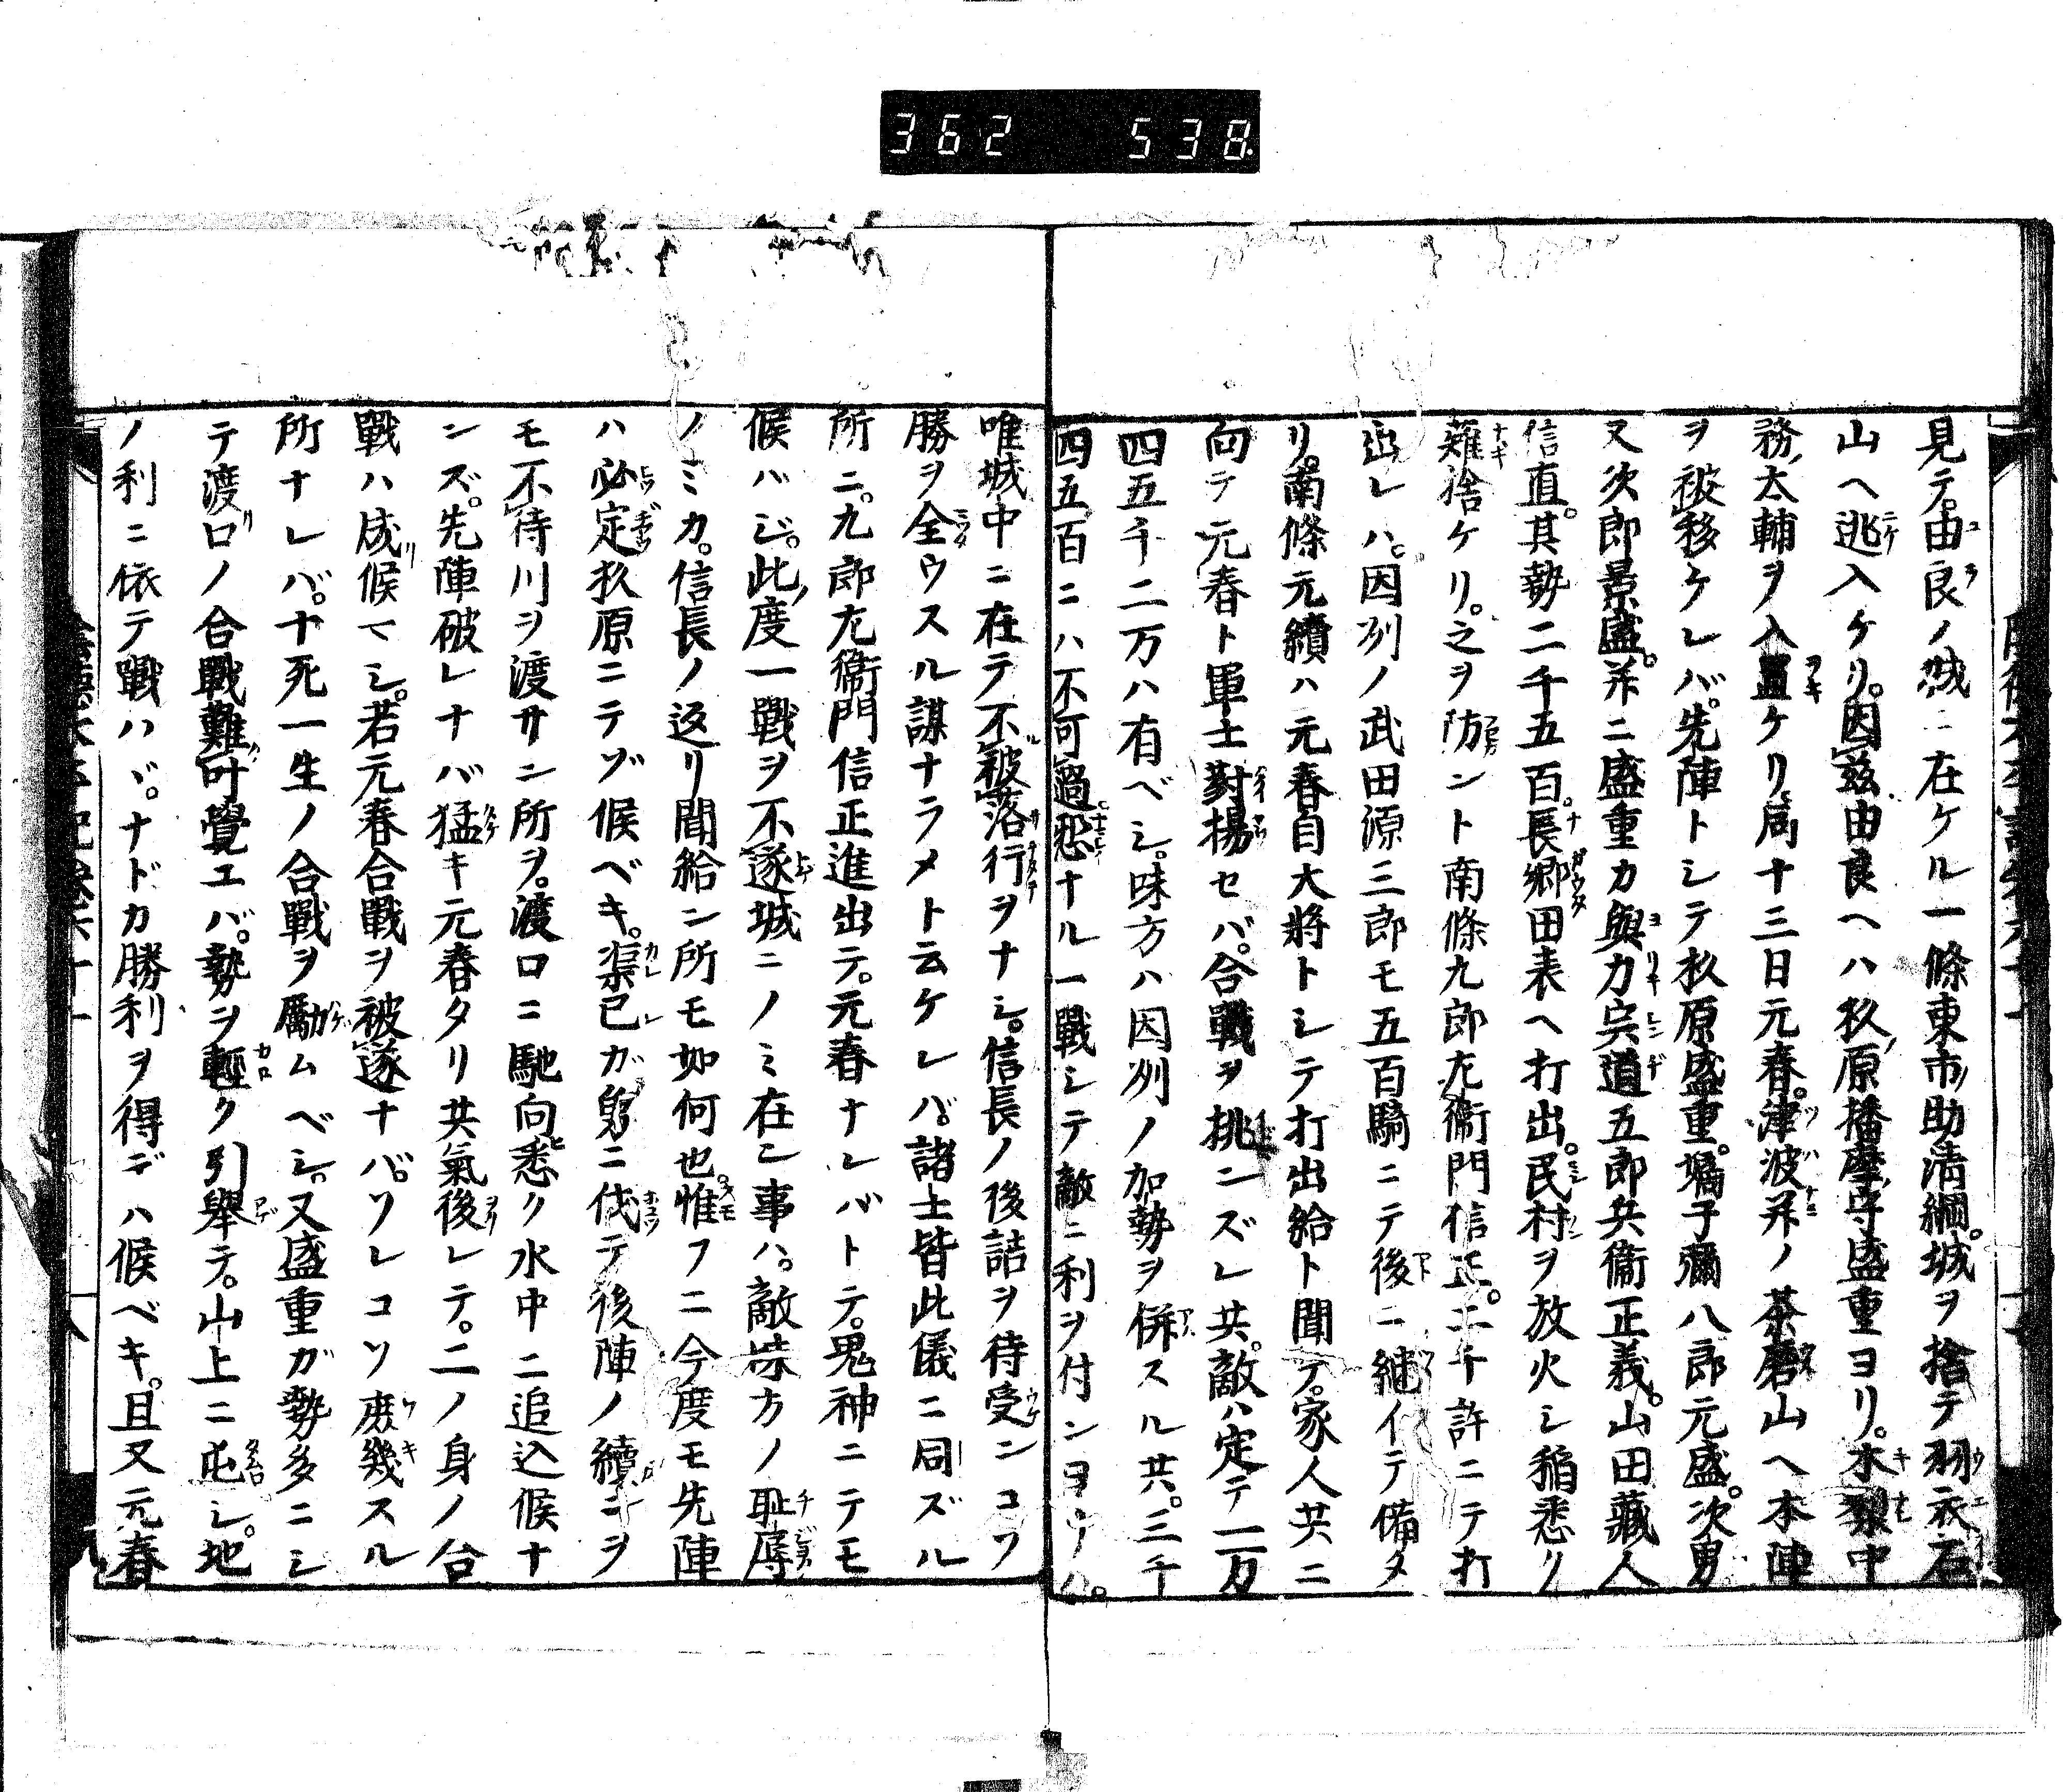 362 538
見テ。由良ノ城ニ在ケル一條東市助清綱。城ヲ捨テ羽衣石
山ヘ逃入ケリ。因茲由良ヘハ杦原播摩守盛重ヨリ。木梨中
務太輔ヲ入置ケリ。同十三日元春。津波并ノ茶磨山ヘ本陣
ヲ被移ケレバ。先陣トシテ杦原盛重。嫡子彌八郎元盛。次男
又次郎景盛。并ニ盛重カ與力宍道五郎兵衞正義。山田藏人
信直。其勢二千五百。長郷田表ヘ打出。民村ヲ放火シ稲悉ク
薙捨ケリ。之ヲ防ント南條九郎左衞門信正。二千許ニテ打
出レハ。因州ノ武田源三郎モ五百騎ニテ後ニ継イテ備タ
リ。南條元續ハ元春自大將トシテ打出給ト聞テ。家人共ニ
向テ元春ト軍士對揚セバ。合戰ヲ挑ンズレ共。敵ハ定テ一万
四五千二万ハ有ベシ。味方ハ因州ノ加勢ヲ併スル共。三千
四五百ニハ不可過。悲ナル一戰シテ敵ニ利ヲ付ンヨリハ。
唯城中ニ在テ不被落行ヲナシ。信長ノ後詰ヲ待受ンコソ
勝ヲ全ウスル謀ナラメト云ケレバ。諸士皆此儀ニ同ズル
所ニ。九郎左衞門信正進出テ。元春ナレバトテ。鬼神ニテモ
候ハジ。此度一戰ヲ不遂城ニノミ在シ事ハ。敵味方ノ恥辱
ノミカ。信長ノ返リ聞給ン所モ如何也。惟フニ今度モ先陣
ハ必定杦原ニテゾ候ベキ。渠已ガ勇ニ伐テ後陣ノ續ニヲ
モ不待川ヲ渡サン所ヲ。渡口ニ馳向悉ク水中ニ追込候ナ
ンズ。先陣破レナバ猛キ元春タリ共氣後レテ。二ノ身ノ合
戰ハ成候マシ。若元春合戰ヲ被遂ナバ。ソレコソ庶幾スル
所ナレバ。十死一生ノ合戰ヲ勵ムベシ。又盛重ガ勢多ニシ
テ渡口ノ合戰難叶覺エバ。勢ヲ輕ク引擧テ。山上ニ屯シ。地
ノ利ニ依テ戰ハヾ。ナドカ勝利ヲ得デハ候ベキ。且又元春